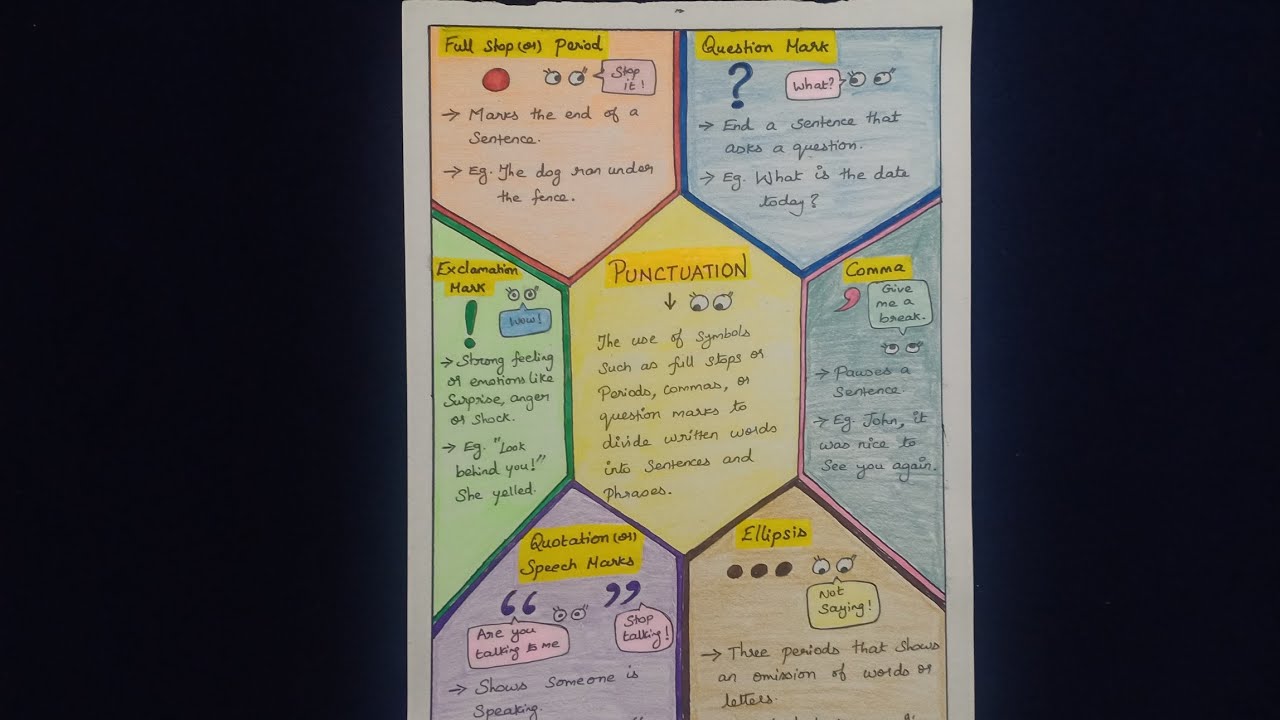 Full Stop (or) Period
Stop
it!
→ Marks the end of a
Sentence.
→ Eg. The dog ran under
the fence.
Question Mark
?
What?
→ End a sentence that
asks a question.
→ Eg. What is the date
today?
Exclamation
Mark
!
Wow!
→ Strong feeling
or emotions like
Surprise, anger
or Shock.
→ Eg. "Look
behind you!"
She yelled.
PUNCTUATION
↓
The use of Symbols
Such as full stops or
Periods, commas, or
question marks to
divide written words
into Sentences and
Phrases.
Comma
,
Give
me a
break.
→ Pauses a
Sentence.
→ Eg. John, it
was nice to
See you again.
Quotation (or)
Speech Marks
“ ”
Are you
talking to me
Stop
talking!
→ Shows Someone is
Speaking.
Ellipsis
...
Not
Saying!
→ Three periods that Shows
an omission of words or
letters.